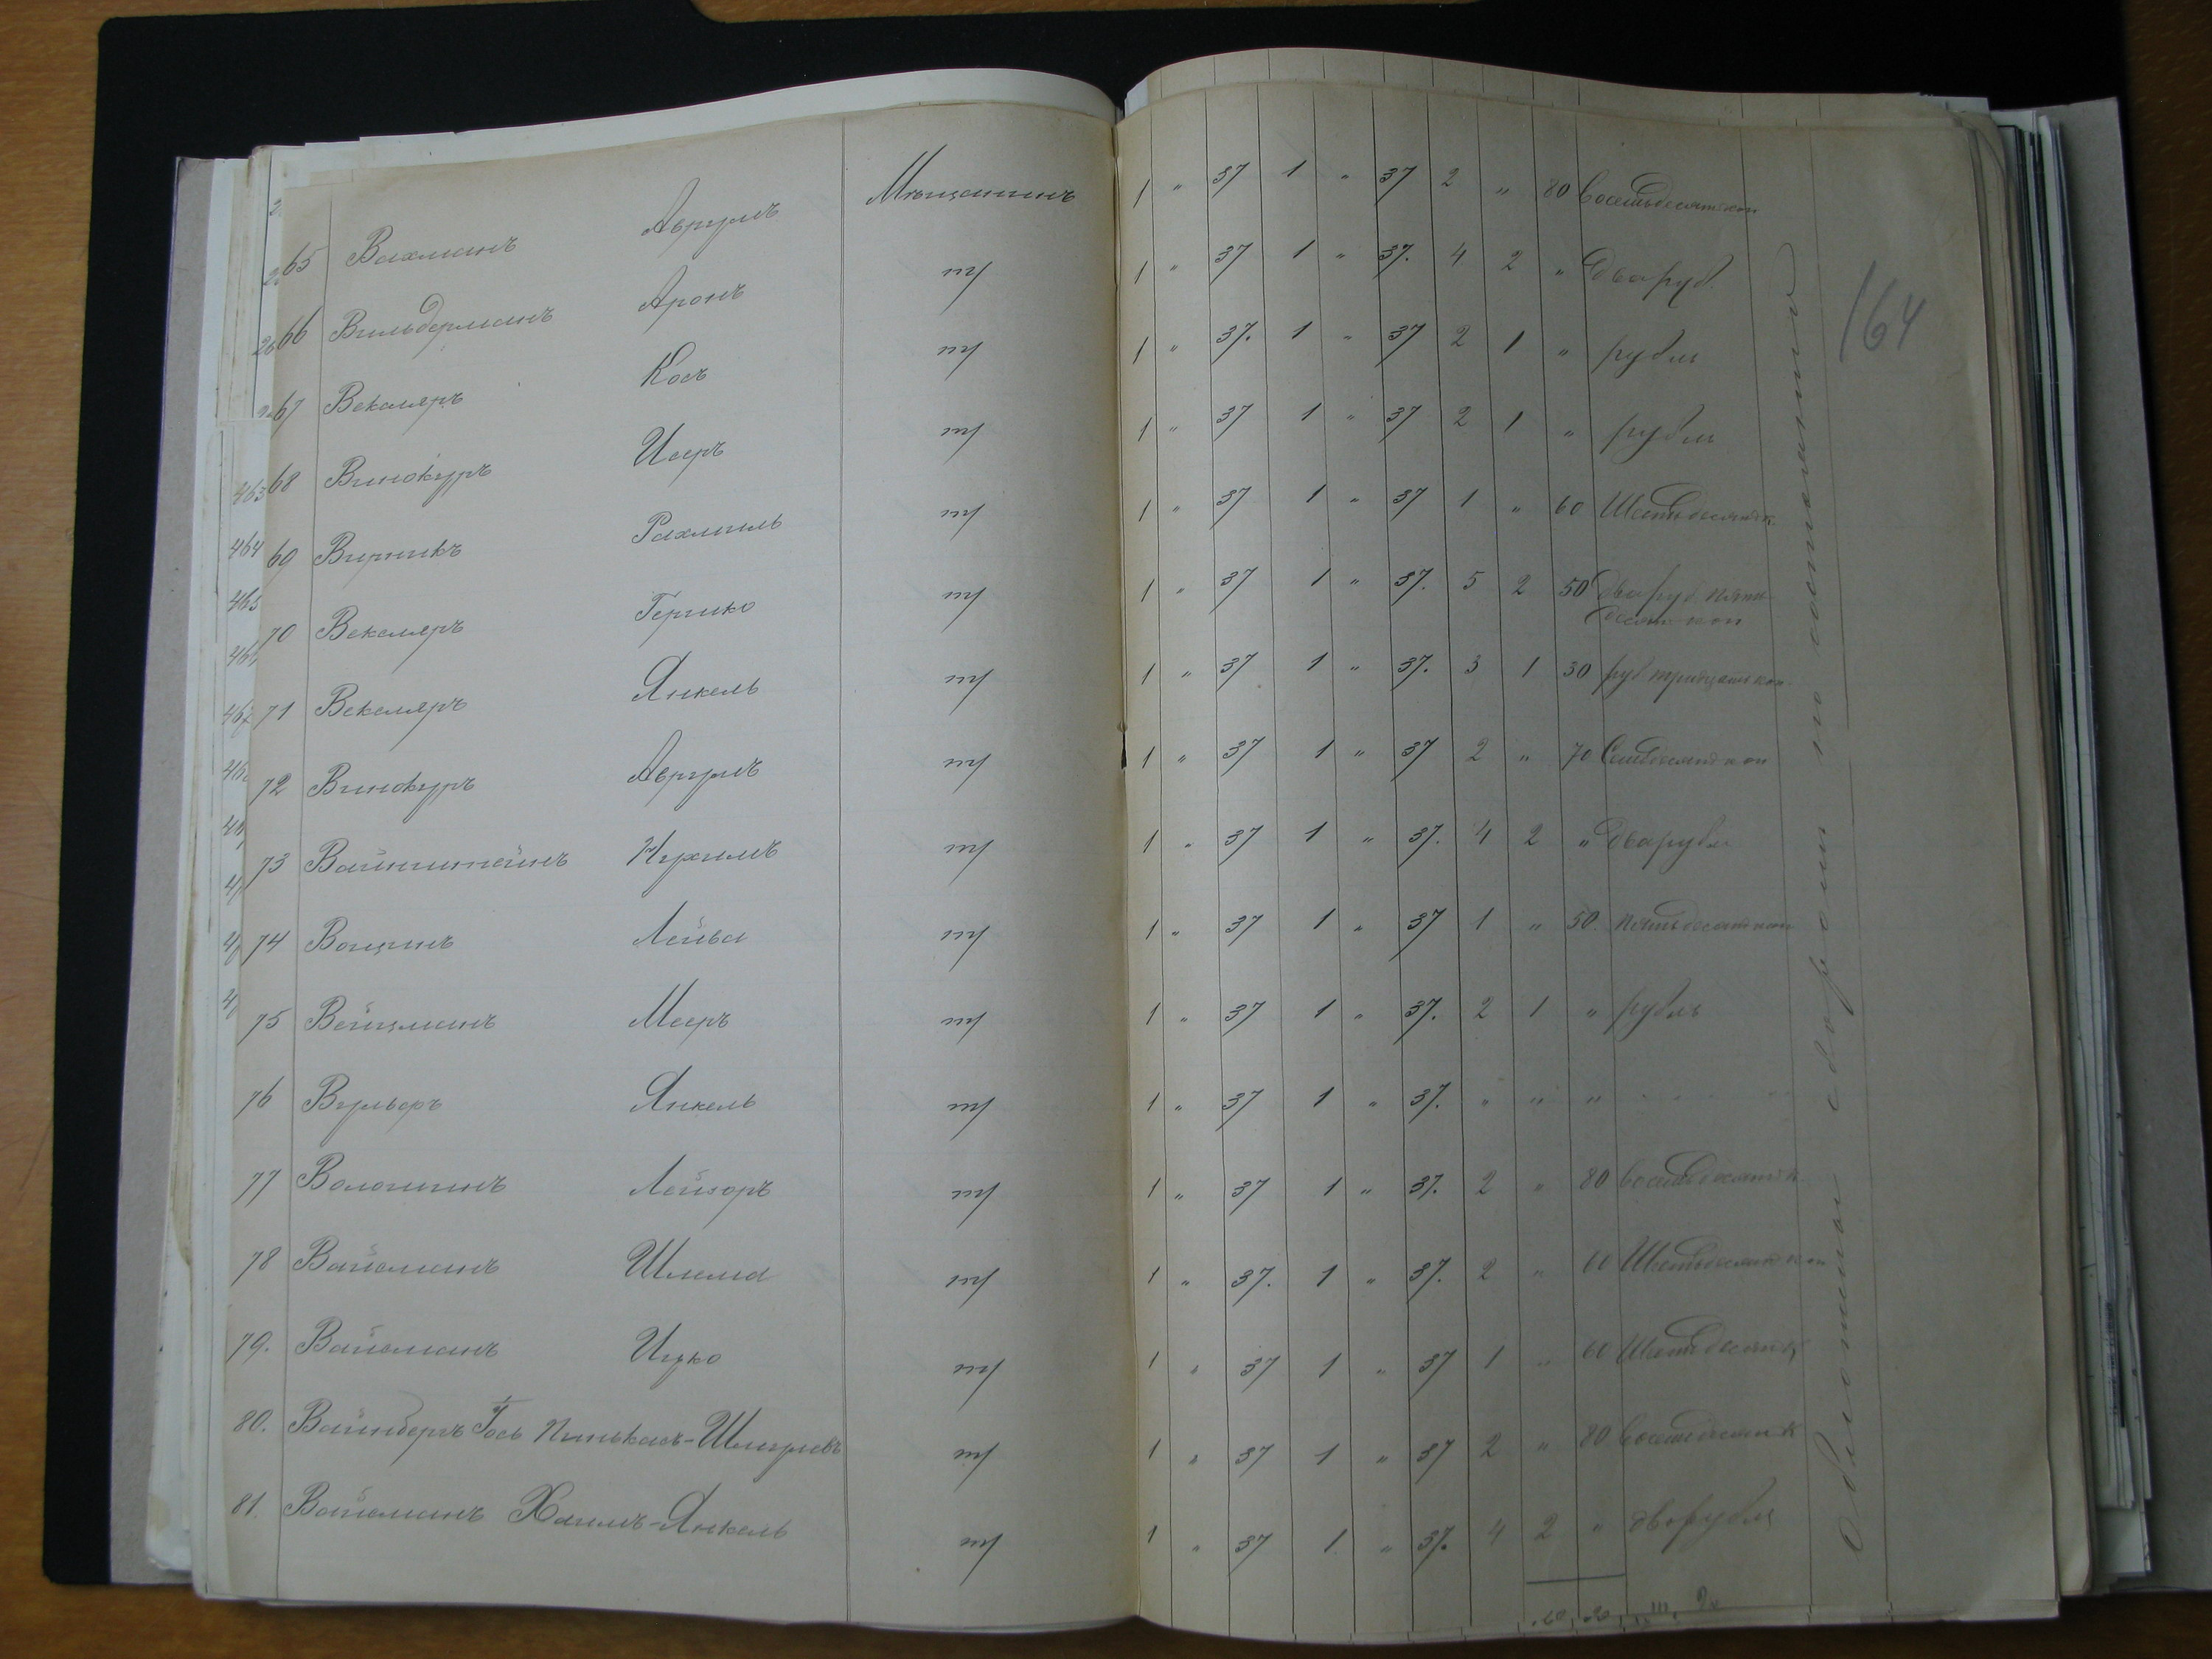 164
65 Вахманъ Аврумъ Мѣщанинъ 1 " 37 1 " 37 2 " 80 восемьдесят коп
66 Вильдерманъ Аронъ тж 1 " 37 1 " 37. 4 2 " два руб.
67 Векслеръ Кось тж 1 " 37. 1 " 37 2 1 " рубль
68 Винокуръ Исеръ тж 1 " 37 1 " 37 2 1 " рубль
69 Вирникъ Рахмиль тж 1 " 37 1 " 37 1 " 60 Шестьдесят к
70 Векслеръ Гершко тж 1 " 37 1 " 37. 5 2 50 два руб. пять-
десят коп
71 Векслеръ Янкель тж 1 " 37 1 " 37. 3 1 30 руб. тридцать коп.
72 Винокуръ Аврумъ тж 1 " 37 1 " 37 2 " 70 Семьдесят коп
73 Вайнштейнъ Нухимъ тж 1 " 37 1 " 37. 4 2 " два рубля
74 Ващинъ Лейба тж 1 " 37 1 " 37 1 " 50. пятьдесят коп
75 Вейцманъ Мееръ тж 1 " 37 1 " 37. 2 1 " рубль
76 Вульферъ Янкель тж 1 " 37 1 " 37. " " "
77 Волошинъ Лейзоръ тж 1 " 37 1 " 37. 2 " 80 восемьдесят к
78 Вайсманъ Шлема тж 1 " 37. 1 " 37. 2 " 60 Шестьдесят коп
79. Вайсманъ Ицко тж 1 " 37 1 " 37 1 " 60 Шестьдесят к
80. Вайнберъ Іось Пинькасъ-Шмулевъ тж 1 " 37 1 " 37 2 " 80 восемьдесят к
81. Вайсманъ Хаимъ-Янкель тж 1 " 37 1 " 37. 4 2 " два рубля
сборами по
463
464
465